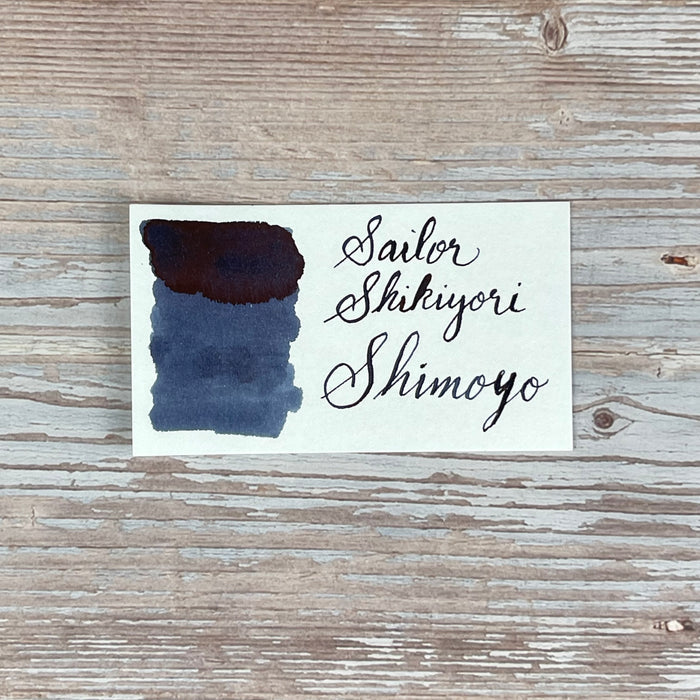 Sailor
Shikiyori
Shimoyo